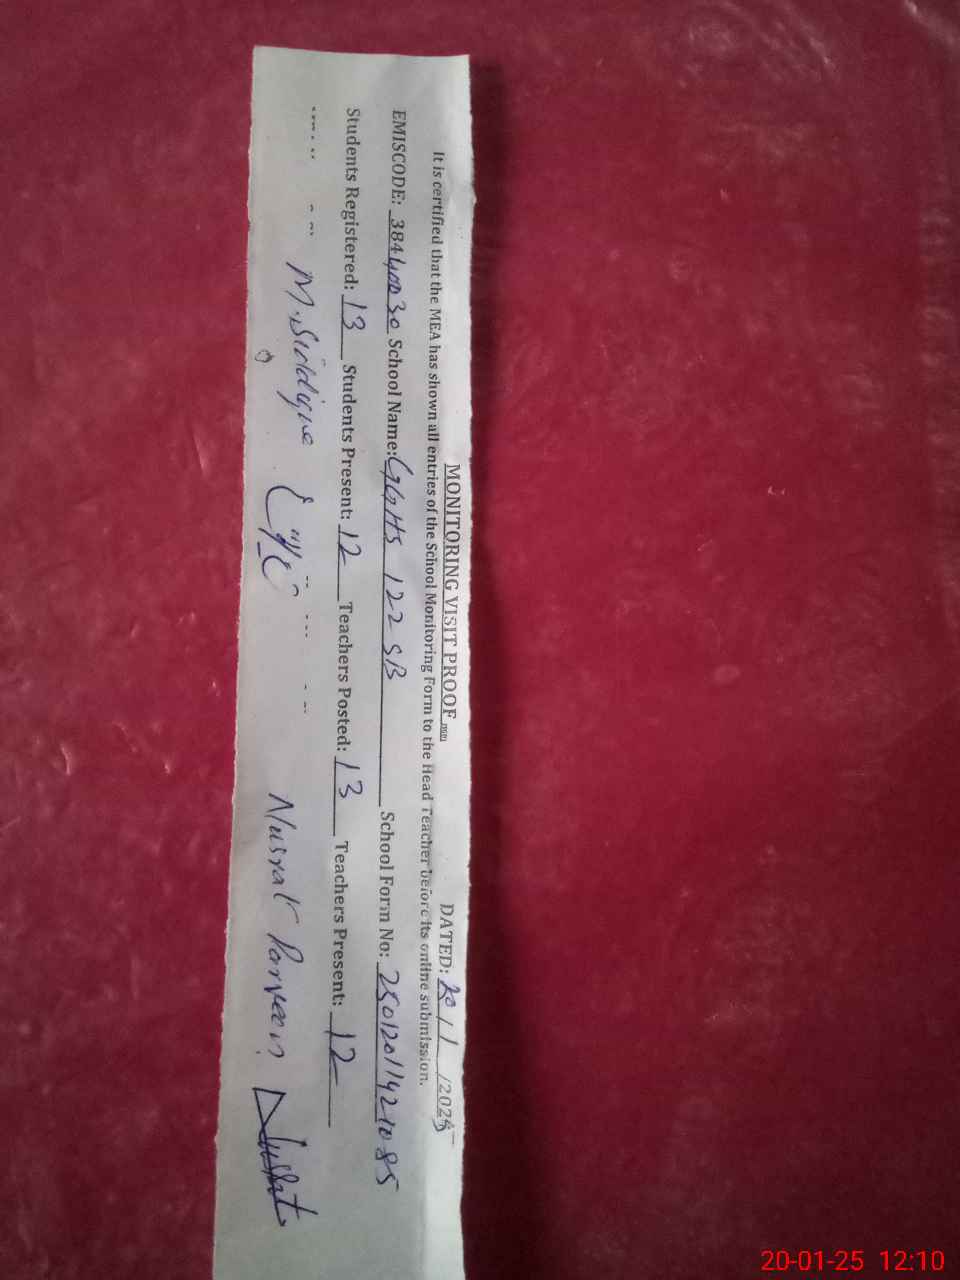 MONITORING VISIT PROOF DATED: 20/1/2025
It is certified that the MEA has shown all entries of the School Monitoring Form to the Head Teacher before its online submission.
EMISCODE: 38440030 School Name: GGHS 122 SB School Form No: 25012011421085
Students Registered: 13 Students Present: 12 Teachers Posted: 13 Teachers Present: 12
M. Siddique Nusrat Parveen
20-01-25 12:10